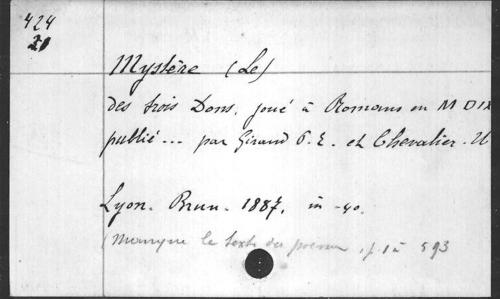 424
Mystère (Le)
des trois Dons, joué à Romans en M D IX
publié... par Giraud P. E. et Chevalier. U
Lyon. Brun. 1887. in-4o.
(Manque le texte du poème, p. 1 à 593